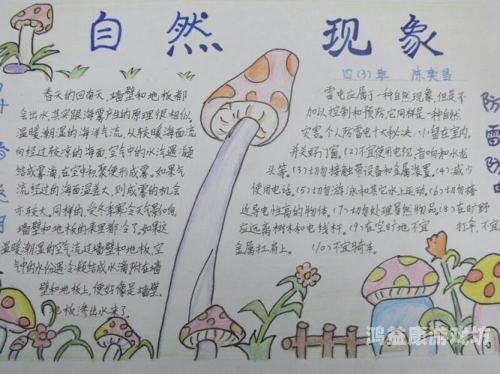 自然现象
四(3)班 陈奕昌
春天的回南天,墙壁和地板都
会出水其实跟海雾产生的原理很相似,
温暖、朝湿的海洋气流,从较暖海面流
向经过较凉的海面,空气中的水汽遇冷凝
结成雾滴,在空中积聚便形成雾。如果气
流,经过的海面温差大,则成雾的机会
亦较大。同样的,受冬季寒冷天气影响,
墙壁和地板的温度都冷了。如果这
温暖、朝湿的空气流过墙壁和地板,空
气中的水份遇冷凝结成水滴附在墙
壁和地板上,便好像是墙壁、
地板渗出水来了。
雷电应属于一种自然现象,但是不
加以控制和预防,它同样是一种自然
灾害,个人防雷十大秘诀:(1)留在室内,
并关好门窗。(2)不宜使用电视、音响和水龙
头等。(3)切勿接触带设备和金属装置。(4)减少
使用电话。(5)切勿游泳和其它水上运动。(6)切勿接
近导电性高的物体。(7)切勿处理易然物品。(8)在旷野
应远离树木和电线杆。(9)在空旷地不宜 打伞,不宜
金属扛肩上。(10)不宜骑车。
防雷防
鸿益康游戏坊